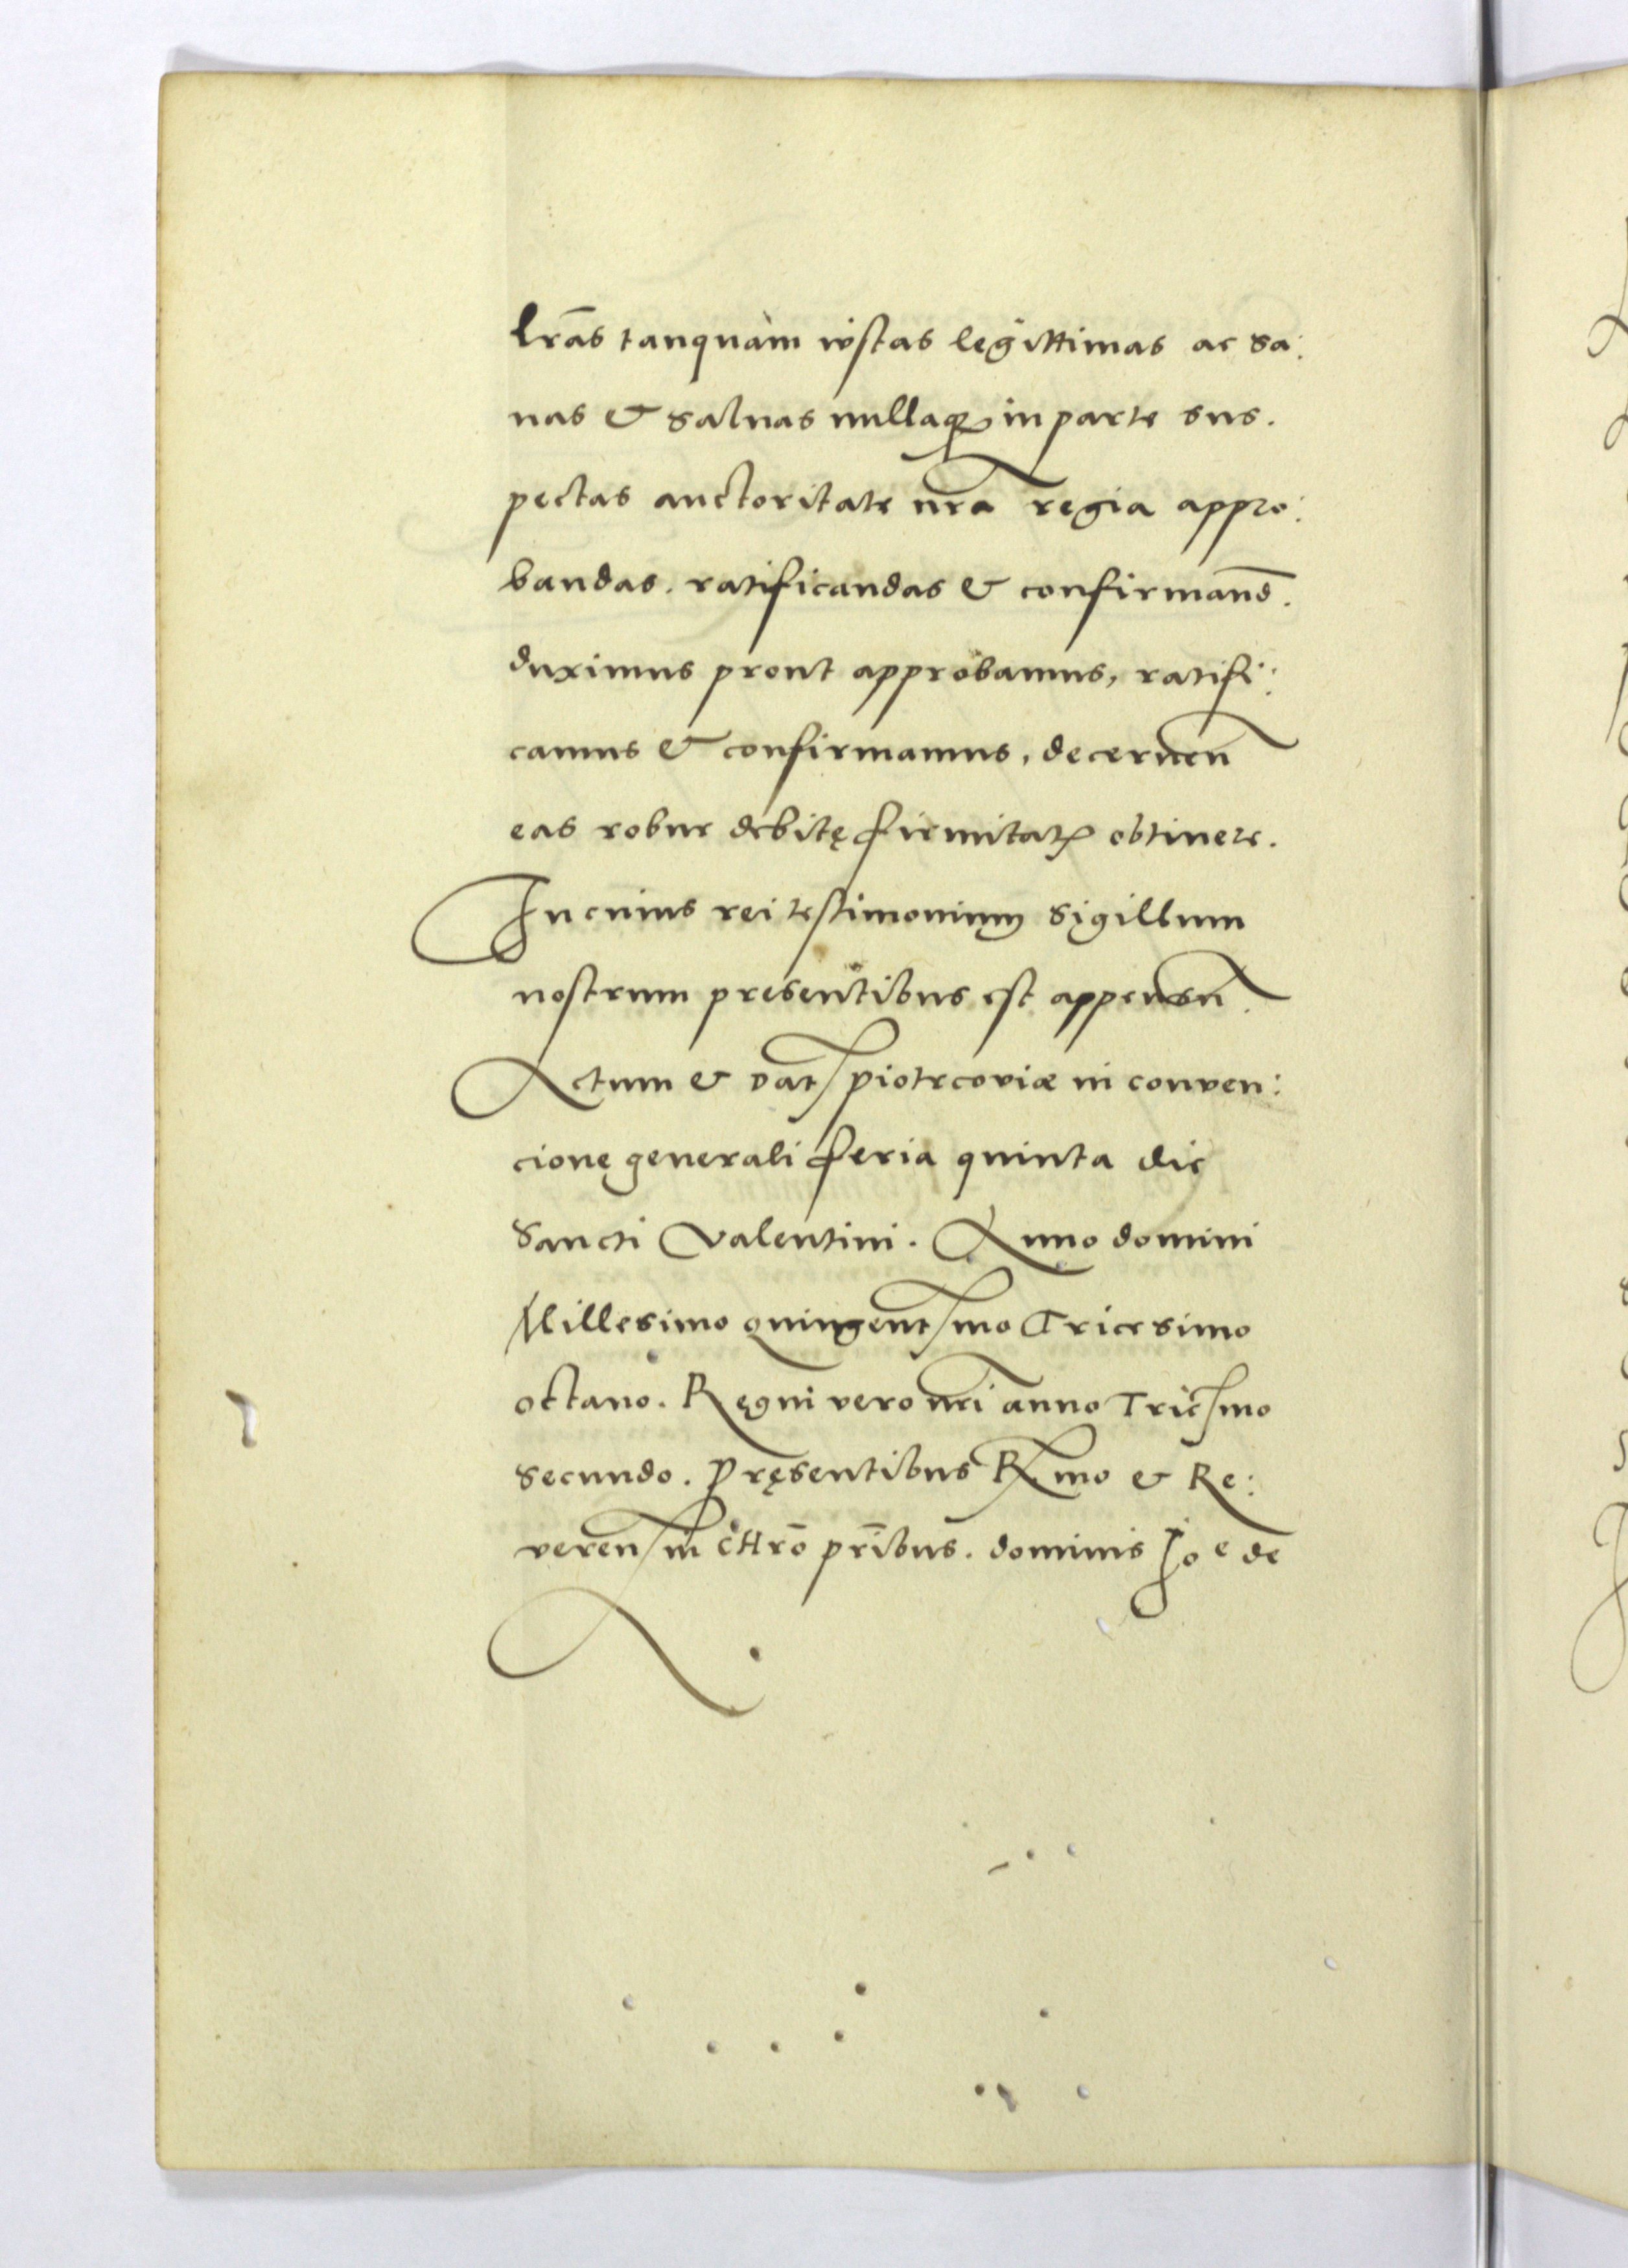 Lr̃as tanquàm iustas legittimas ac sa:
nas & saluas nullaq̃ in parte sus.
pectas auctoritate nr̃a regia appro:
bandas. ratificandas & confirmand̃.
duximus prout approbamus, ratifi:
camus & confirmamus, decernen̄
eas robur debitę firmitatꝭ obtinere.
In cuius rei testimonium sigillum
nostrum presentibus est appensū.
Actum & Datꝭ piotrcoviæ in conven:
cionę generali feria quinta die
Sancti Valentini. Anno domini
Millesimo quingentꝭmo Tricesimo
octauo. Ręgni vero nr̃i anno Tricꝭmo
secundo. Pręsentibus Rꝭmo & Re:
verenꝭ in cHrō pr̄ibus. dominis Ioe de